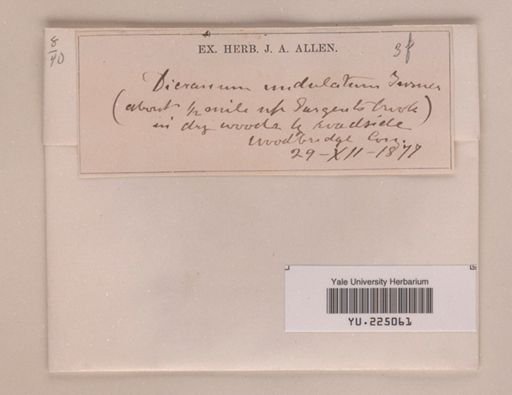 8/40
EX. HERB. J. A. ALLEN.
Dicranum undulatum Turner
(about ½ mile up Sargents brook)
in dry woods by roadside
Woodbridge Con.
29-XII-1877
Yale University Herbarium
YU.225061